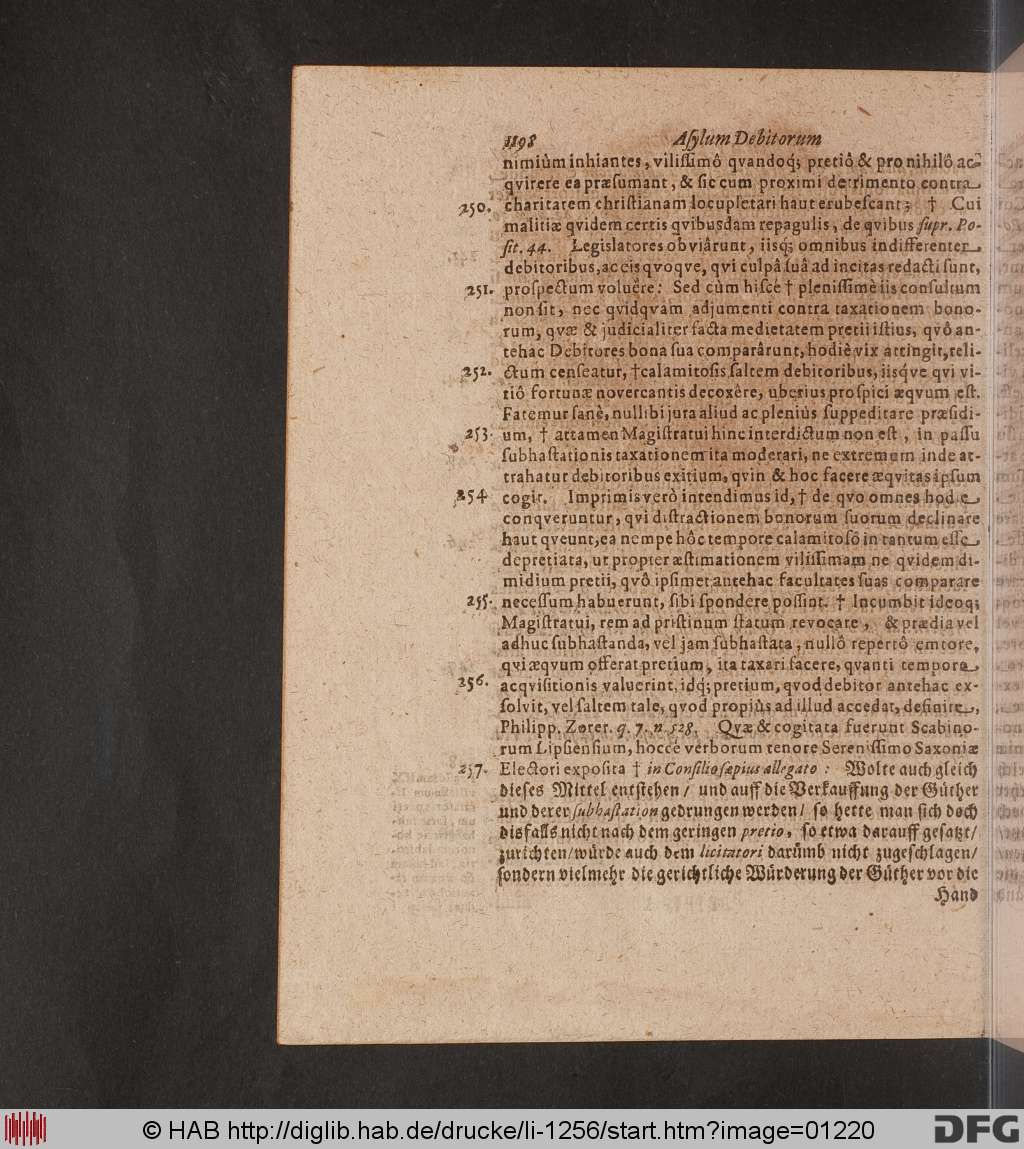 1198 Aſylum Debitorum
nimiùm inhiantes, viliſſimô qvandoq; pretiô & pro nihilô ac-
qvirere ea præſumant, & ſic cum proximi detrimento contra
250. charitatem chriſtianam locupletari haut erubeſcant; † Cui
malitiæ qvidem certis qvibusdam repagulis, de qvibus ſupr. Po-
ſit. 44. Legislatores obviârunt, iisq; omnibus indifferenter
debitoribus, ac eis qvoqve, qvi culpâ ſuâ ad incitas redacti ſunt,
251. proſpectum voluêre: Sed cùm hiſce † pleniſſimè iis conſultum
non ſit, nec qvidqvam adjumenti contra taxationem bono-
rum, qvæ & judicialiter facta medietatem pretii iſtius, qvô an-
tehac Debitores bona ſua comparârunt, hodiè vix attingit, reli-
252. ctum cenſeatur, † calamitoſis ſaltem debitoribus, iisq́ve qvi vi-
tiô fortunæ novercantis decoxêre, uberius proſpici æqvum eſt.
Fatemur ſanè, nullibi jura aliud ac pleniùs ſuppeditare præſidi-
253. um, † attamen Magiſtratui hinc interdictum non eſt, in paſſu
ſubhaſtationis taxationem ita moderari, ne extremum inde at-
trahatur debitoribus exitium, qvin & hoc facere æqvitas ipſum
254 cogit. Imprimis verò intendimus id, † de qvo omnes hodie
conqveruntur, qvi diſtractionem bonorum ſuorum declinare
haut qveunt, ea nempe hôc tempore calamitoſô in tantum eſſe
depretiata, ut propter æſtimationem viliſſimam ne qvidem di-
midium pretii, qvô ipſimet antehac facultates ſuas comparare
255. neceſſum habuerunt, ſibi ſpondere poſſint. † Incumbit ideoq;
Magiſtratui, rem ad priſtinum ſtatum revocare, & prædia vel
adhuc ſubhaſtanda, vel jam ſubhaſtata, nullô repertô emtore,
qvi æqvum offerat pretium, ita taxari facere, qvanti tempore
256. acqviſitionis valuerint, idq; pretium, qvod debitor antehac ex-
ſolvit, vel ſaltem tale, qvod propiùs ad illud accedat, definire,
Philipp. Zoter. q. 7. n. 528. Qvæ & cogitata fuerunt Scabino-
rum Lipſienſium, hocce verborum tenore Sereniſſimo Saxoniæ
257. Electori expoſita † in Conſilio ſæpius allegato: Wolte auch gleich
dieſes Mittel entſtehen / und auff die Verkauffung der Güther
und derer ſubhaſtation gedrungen werden / ſo hette man ſich doch
disfalls nicht nach dem geringen pretio, ſo etwa darauff geſatzt /
zurichten / würde auch dem licitatori darümb nicht zugeſchlagen /
ſondern vielmehr die gerichtliche Würderung der Güther vor die
Hand
© HAB http://diglib.hab.de/drucke/li-1256/start.htm?image=01220
DFG